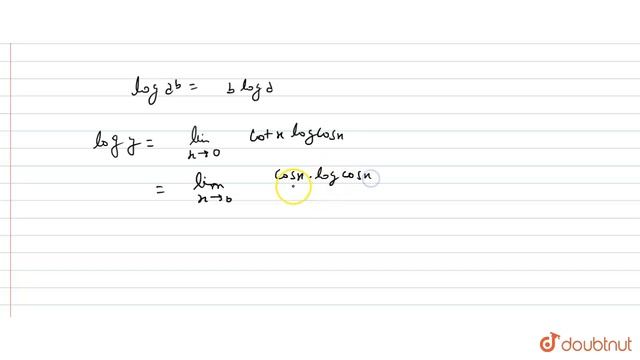 log a^b = b log a
log y = lim x→0 cot x log cos x
= lim x→0 cos x . log cos x
doubtnut